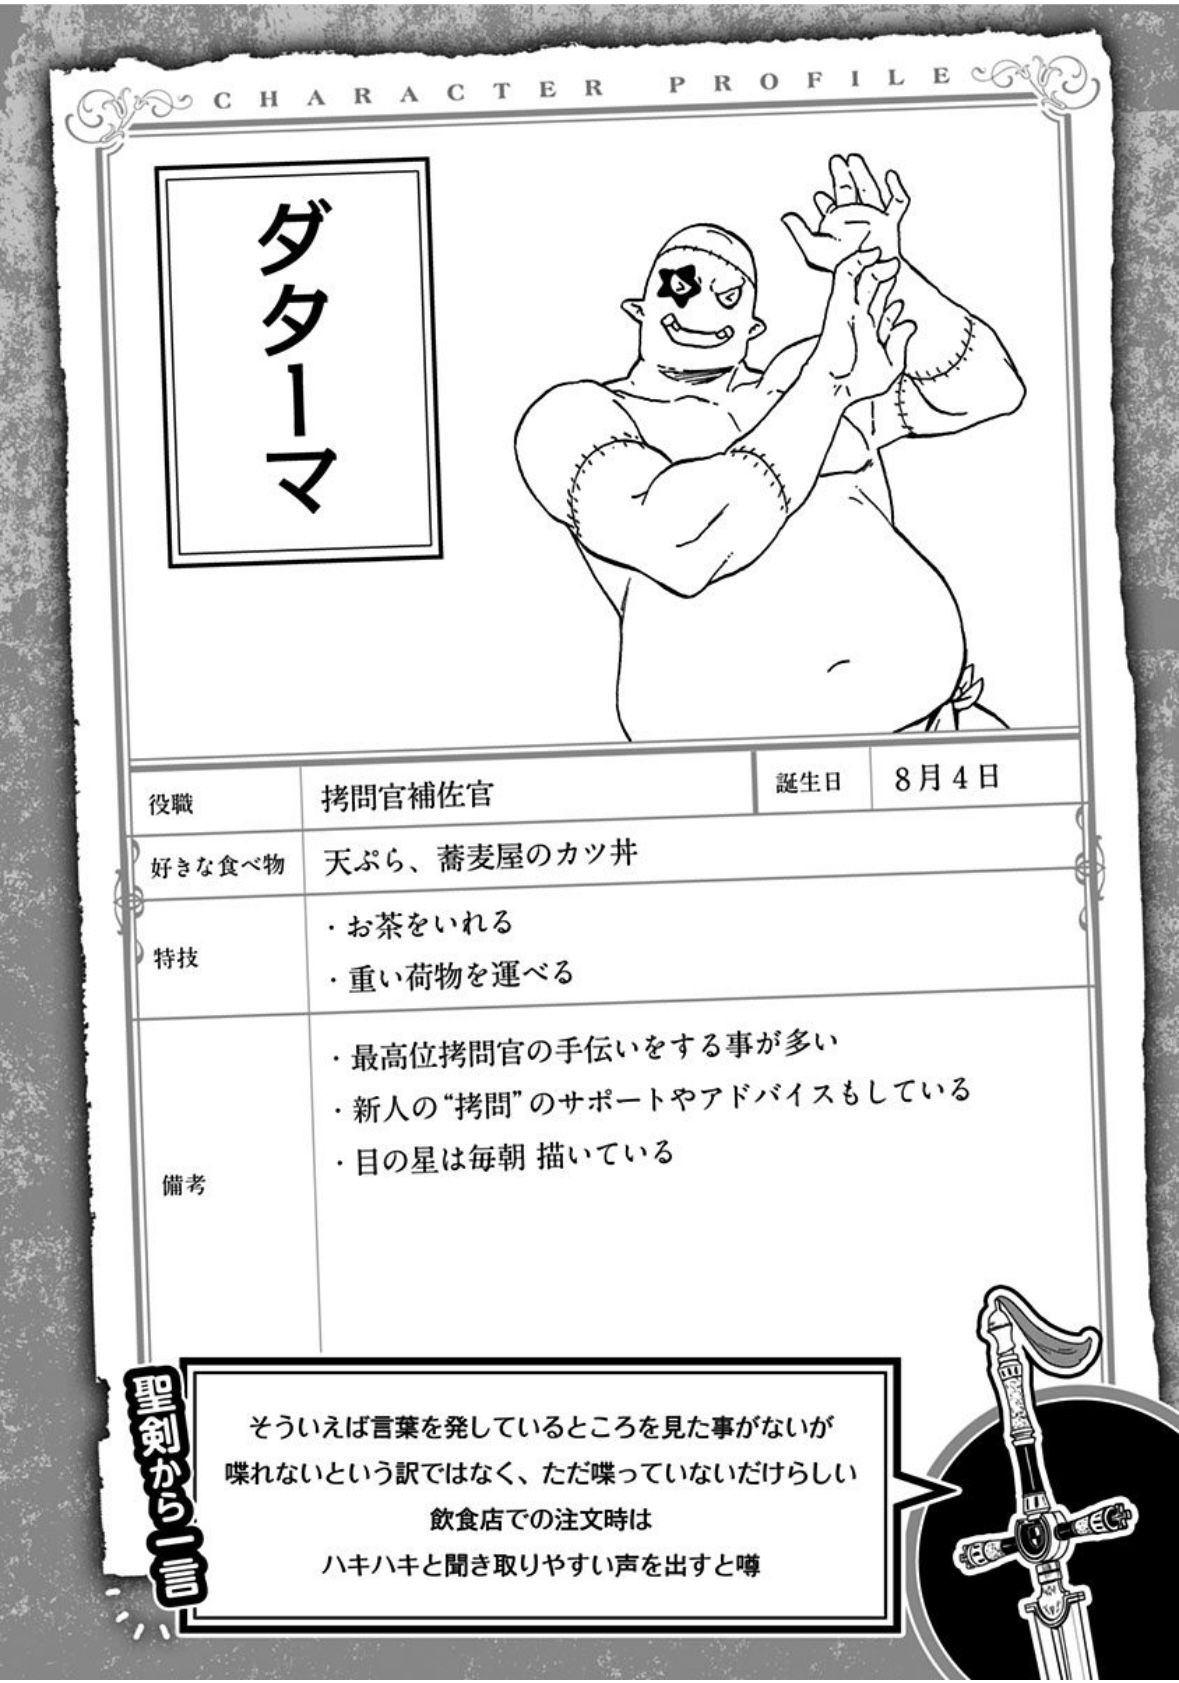 CHARACTER PROFILE
ダターマ
役職
拷問官補佐官
誕生日
8月4日
好きな食べ物
天ぷら、蕎麦屋のカツ丼
特技
・お茶をいれる
・重い荷物を運べる
備考
・最高位拷問官の手伝いをする事が多い
・新人の“拷問”のサポートやアドバイスもしている
・目の星は毎朝 描いている
聖剣から一言
そういえば言葉を発しているところを見た事がないが
喋れないという訳ではなく、ただ喋っていないだけらしい
飲食店での注文時は
ハキハキと聞き取りやすい声を出すと噂